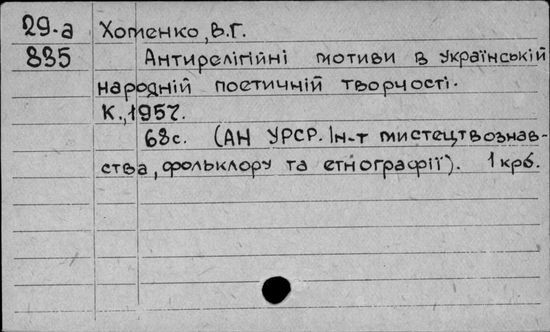 29-а Хоменко, В.Г.
835 Антирелігійні мотиви в українській
народній поетичній творчості.
К., 1957.
68с. (АН УРСР. Ін-т мистецтвознав-
ства, фольклору та етнографії). 1 крб.